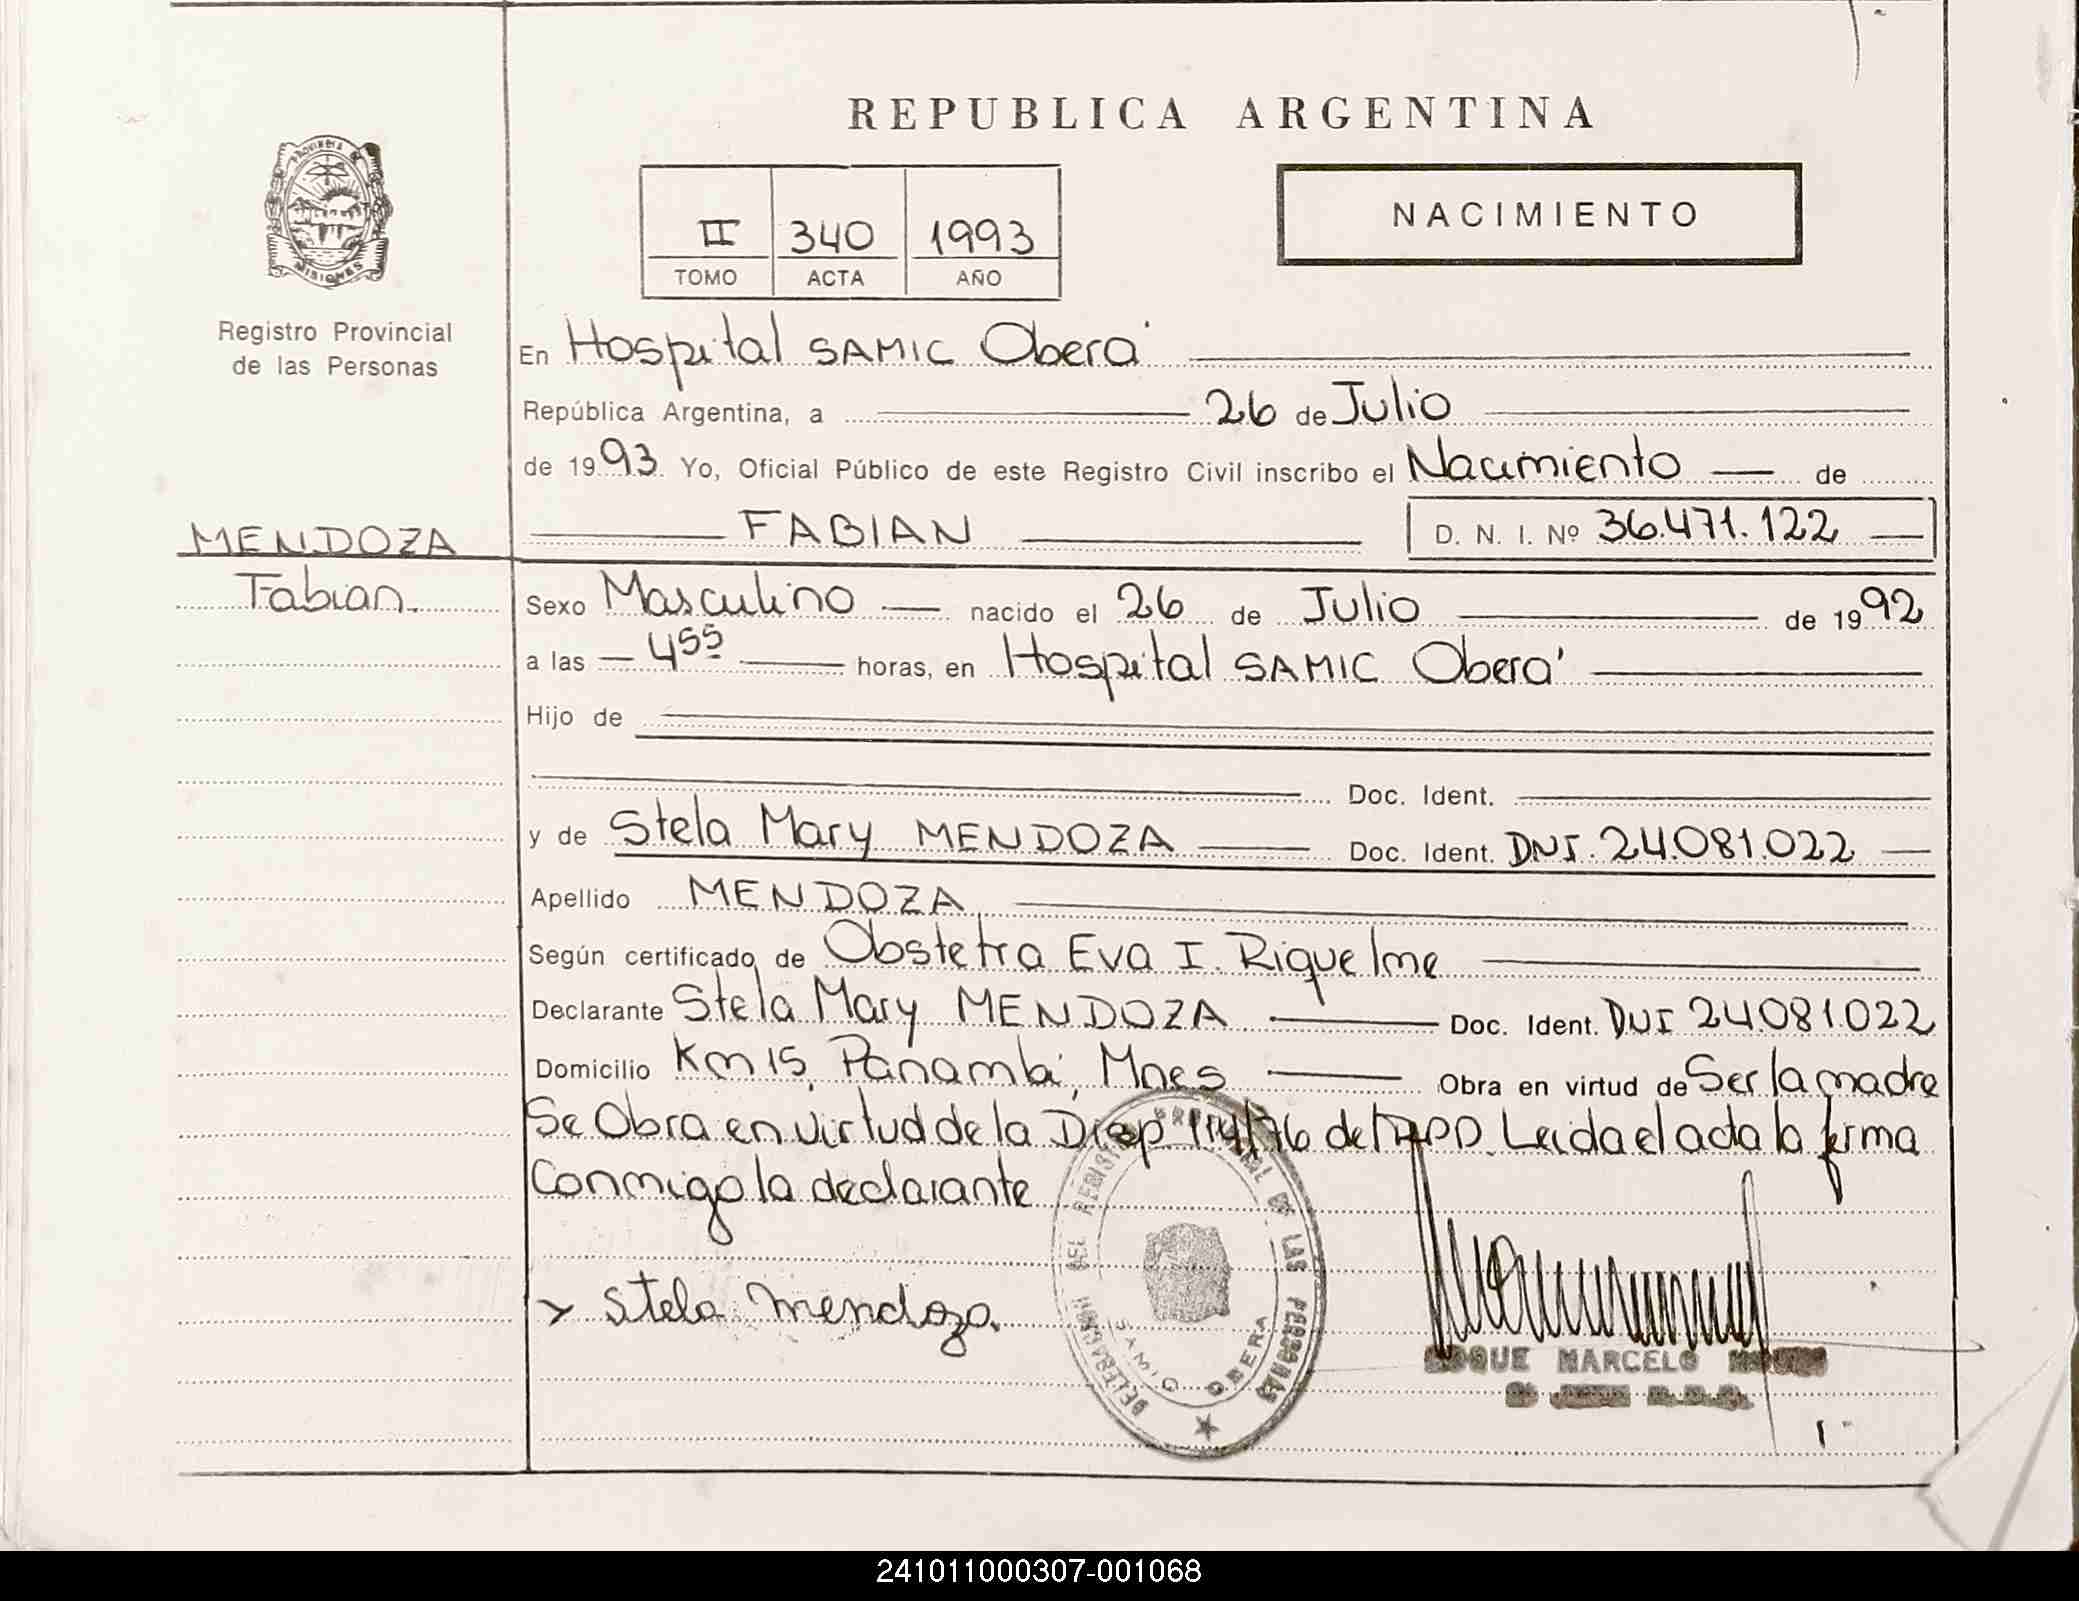 REPUBLICA ARGENTINA
PROVINCIA DE MISIONES
II 340 1993
TOMO ACTA AÑO
NACIMIENTO
Registro Provincial
de las Personas
MENDOZA
Fabian.
En Hospital SAMIC Oberá
República Argentina, a 26 de Julio
de 1993. Yo, Oficial Público de este Registro Civil inscribo el Nacimiento de
FABIAN D. N. I. Nº 36.471.122
Sexo Masculino nacido el 26 de Julio de 1992
a las 4 55 horas, en Hospital SAMIC Oberá
Hijo de
Doc. Ident.
y de Stela Mary MENDOZA Doc. Ident. DNI. 24.081.022
Apellido MENDOZA
Según certificado de Obstetra Eva I. Riquelme
Declarante Stela Mary MENDOZA Doc. Ident. DNI 24.081.022
Domicilio Km 15, Panambí, Mnes Obra en virtud de Ser la madre
Se Obra en virtud de la Disp 114/76 del Leida el acta la firma
Conmigo la declarante
Stela Mendoza.
DELEGACION DEL REGISTRO PROVINCIAL DE LAS PERSONAS
SAMIC OBERA
ROQUE MARCELO
241011000307-001068